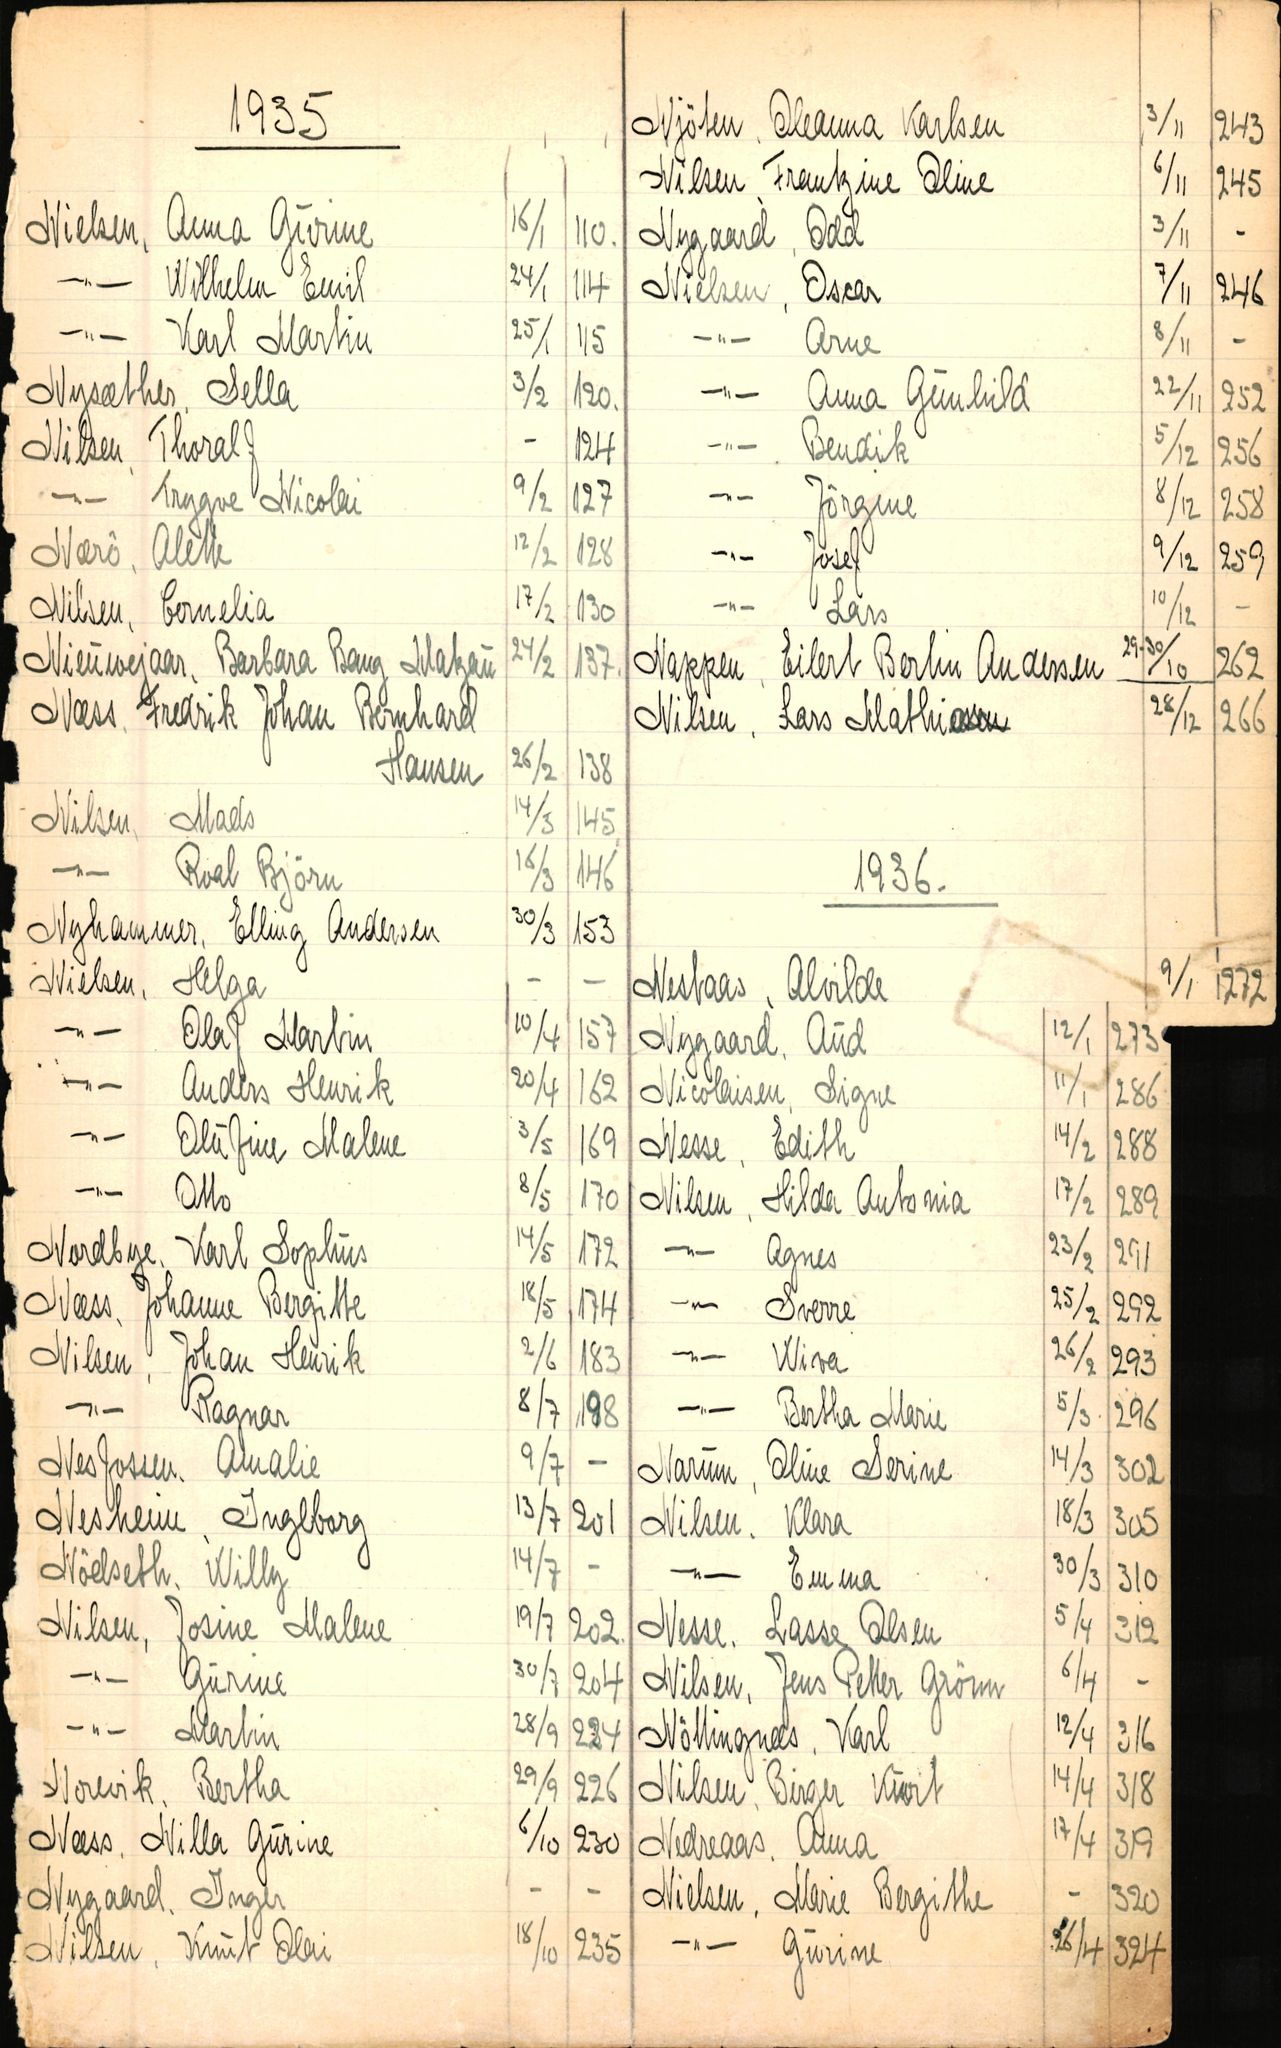 1935
Nielsen, Anna Gurine 16/1 110.
-"- Wilhelm Emil 24/1 114
-"- Karl Martin 25/1 115
Nysæther, Sella 3/2 120.
Nilsen, Thoralf - 124
-"- Trygve Nicolai 9/2 127
Nærö, Alette 12/2 128
Nilsen, Cornelia 17/2 130
Nieuwejaar, Barbara Bang Matzau 24/2 137.
Næss, Fredrik Johan Bernhard
Hansen 26/2 138
Nilsen, Mads 14/3 145
-"- Roal Björn 16/3 146
Nyhammer, Elling Andersen 30/3 153
Nielsen, Helga - -
-"- Olaf Martin 10/4 157
-"- Anders Henrik 20/4 162
-"- Olufine Malene 3/5 169
-"- Otto 8/5 170
Nordbye, Karl Sophus 14/5 172
Næss, Johanne Bergitte 18/5 174
Nilsen, Johan Henrik 2/6 183
-"- Ragnar 8/7 198
Nesfossen, Amalie 9/7 -
Nesheim, Ingeborg 13/7 201
Nödseth, Willy 14/7 -
Nilsen, Josine Malene 19/7 202.
-"- Gurine 30/7 204
-"- Martin 28/9 224
Norevik, Bertha 29/9 226
Næss, Nilla Gurine 6/10 230
Nygaard, Inger - -
Nilsen, Knut Olai 18/10 235
Njöten, Oleanna Karlsen 3/11 243
Nilsen Frantzine Oline 6/11 245
Nygaard, Odd 3/11 -
Nielsen, Oscar 7/11 246
-"- Arne 8/11 -
-"- Anna Gunhild 22/11 252
-"- Bendik 5/12 256
-"- Jörgine 8/12 258
-"- Josef 9/12 259
-"- Lars 10/12 -
Nappen, Eilert Bertin Andersen 29-30/10 262
Nilsen, Lars Mathias 28/12 266
1936.
Nesbaas, Alvilde 9/1 272
Nygaard, Aud 12/1 273
Nicolaisen, Signe 11/1 286
Nesse, Edith 14/2 288
Nilsen, Hilda Antonia 17/2 289
-"- Agnes 23/2 291
-"- Sverre 25/2 292
-"- Wiva 26/2 293
-"- Bertha Marie 5/3 296
Narum, Oline Serine 14/3 302
Nilsen, Klara 18/3 305
-"- Emma 30/3 310
Nesse, Lasse Olsen 5/4 312
Nilsen, Jens Petter Grönn 6/4 -
Nöttingnæs, Karl 12/4 316
Nilsen, Birger Kurt 14/4 318
Nedreaas, Anna 17/4 319
Nielsen, Marie Bergithe - 320
-"- Gurine 26/4 324